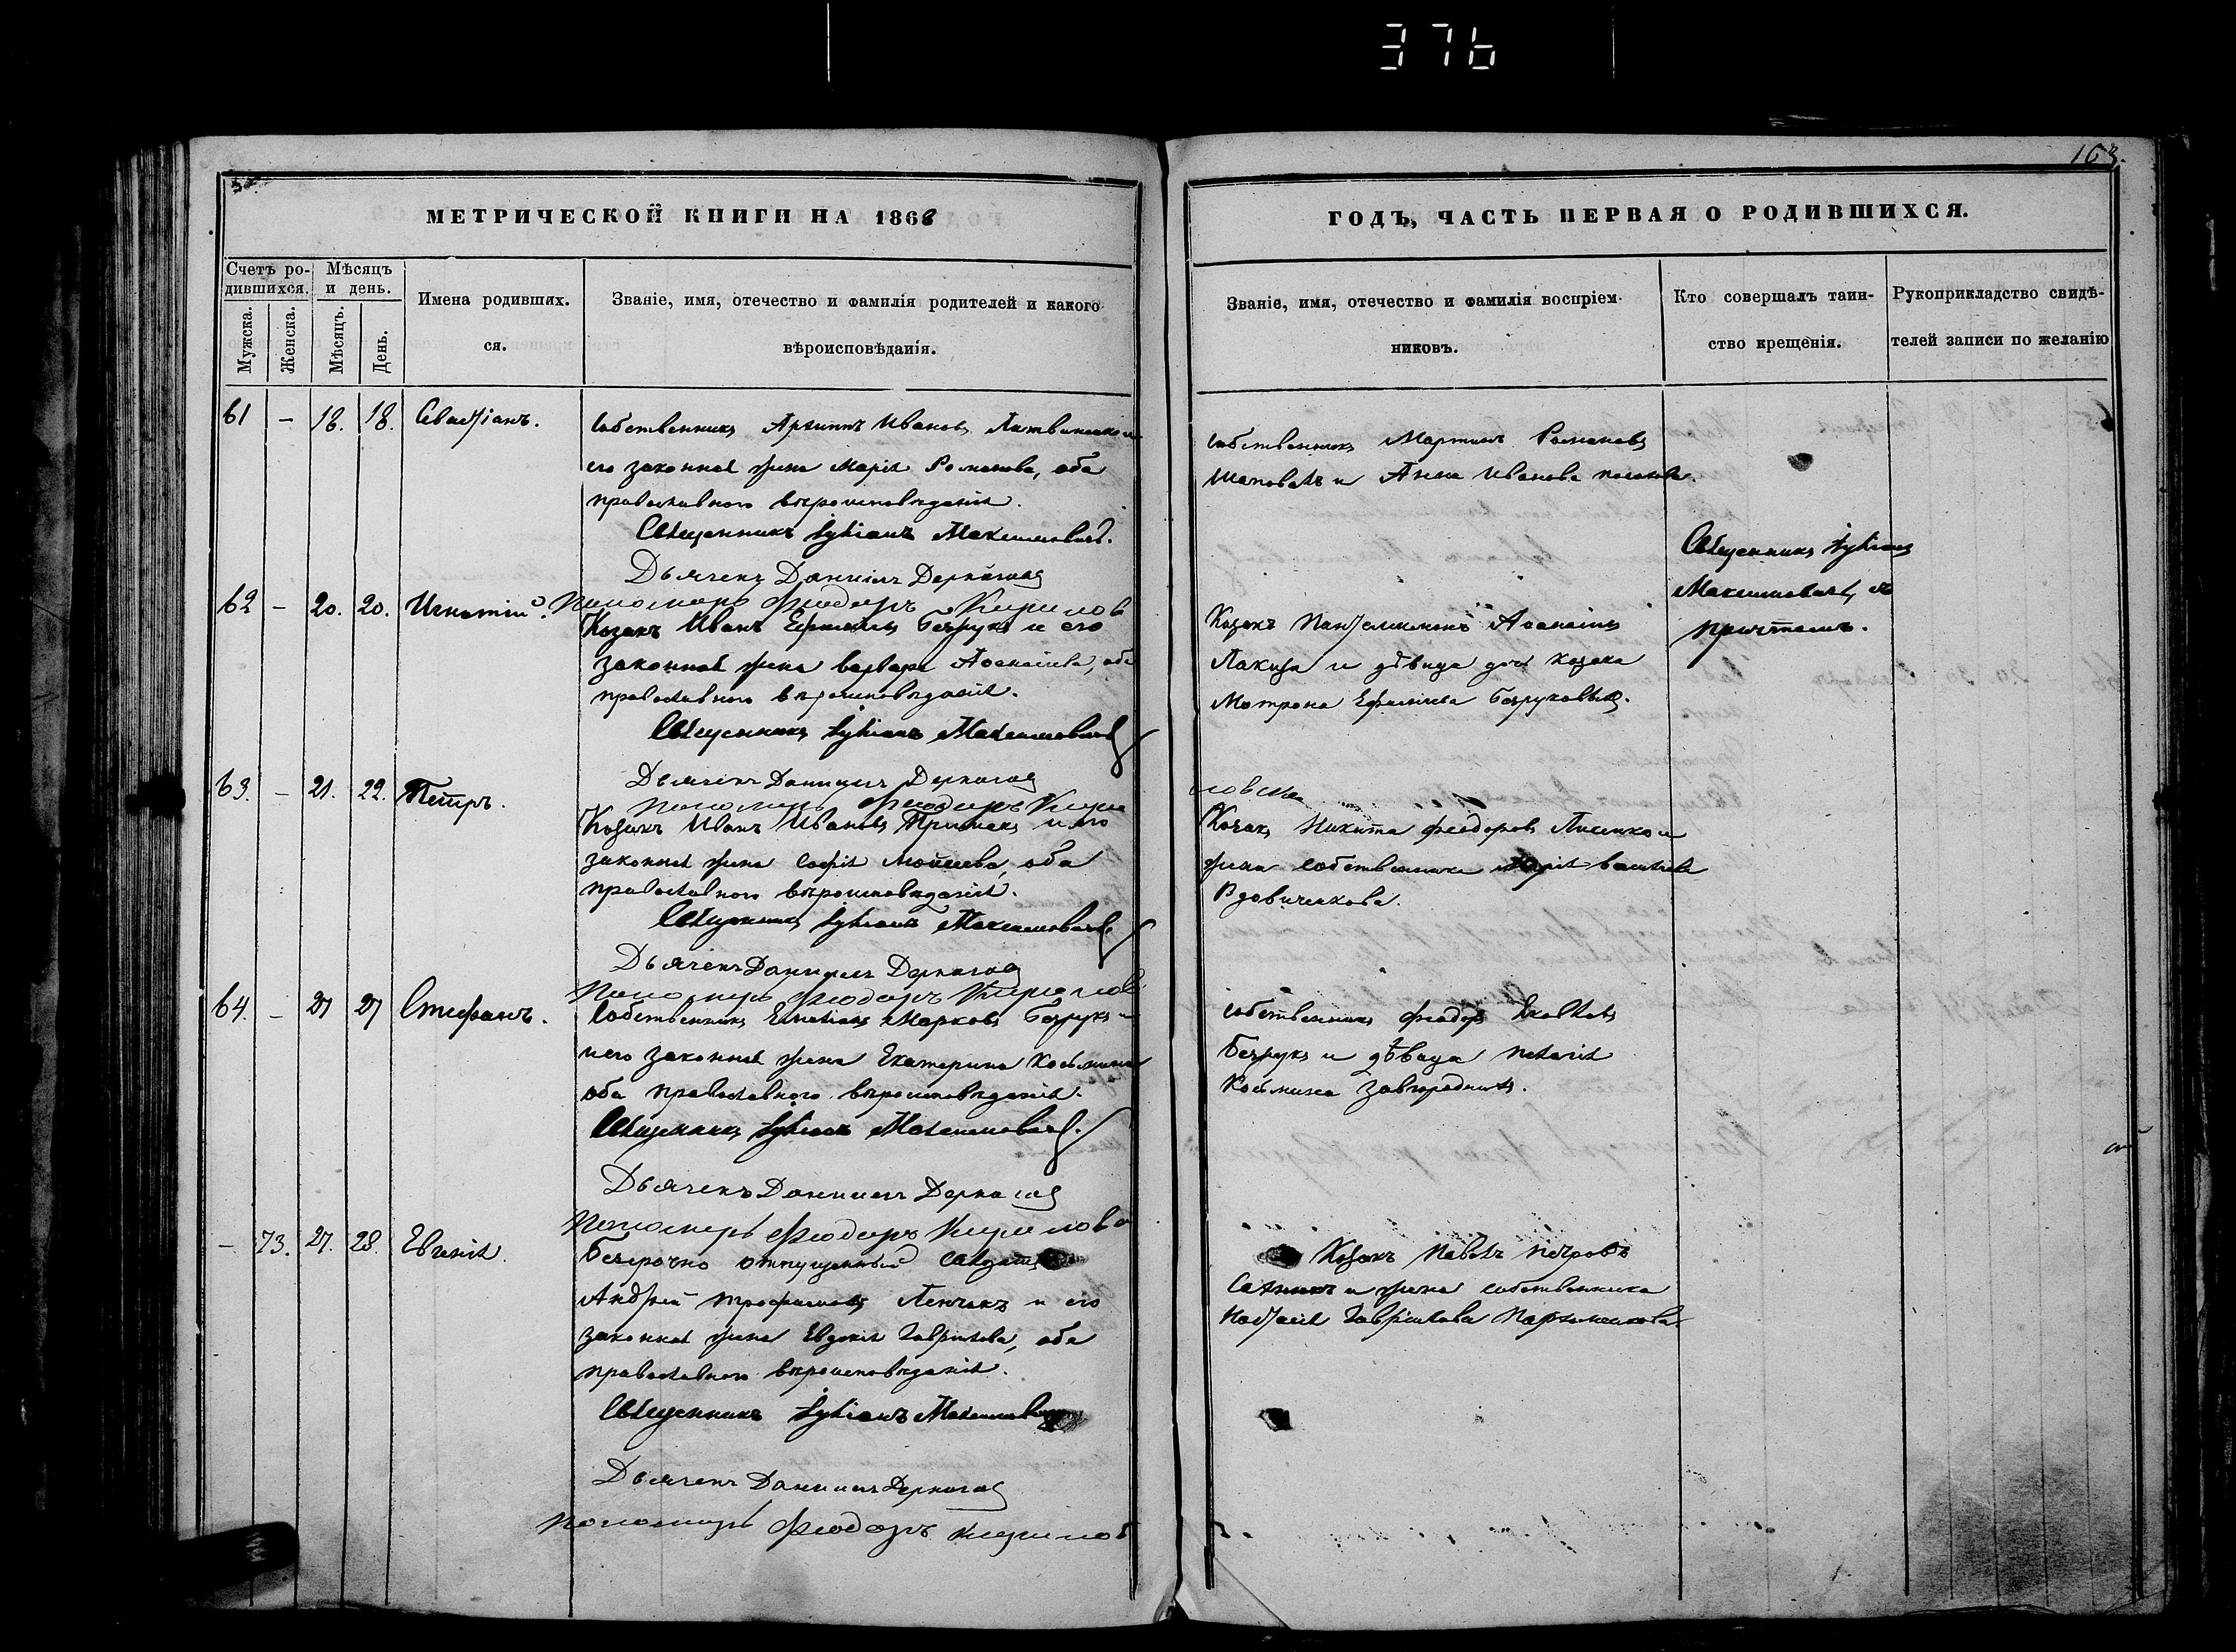 376
163.
МЕТРИЧЕСКОЙ КНИГИ НА 1868
ГОДЪ, ЧАСТЬ ПЕРВАЯ О РОДИВШИХСЯ.
Счетъ ро-
дившихся.
Мужска.
Женска.
Мѣсяцъ
и день.
Мѣсяцъ.
День.
Имена родивших.
ся.
Званіе, имя, отечество и фамилія родителей и какого
вѣроисповѣданія.
Званіе, имя, отечество и фамилія воспріем-
никовъ.
Кто совершалъ таин-
ство крещенія.
Рукоприкладство свидѣ-
телей записи по желанію
61 – 18. 18.
Собственникъ Архипъ Ивановъ
его законная жена Марія Романова, оба
православного вѣроисповѣданія.
Священникъ Лукіанъ Максимовичъ.
Дьячекъ Даніилъ Дерногой
Собственникъ Мартинъ Романовъ
Шаповалъ и Анна Иванова
Священникъ Лукіанъ
Максимовичъ съ
причтомъ.
62 – 20. 20. Игнатій.
Пономарь Феодоръ Кирилов
Козакъ Иванъ Безрукъ и его
законная жена Варвара Аѳанасіева, оба
православного вѣроисповѣданія.
Священникъ Лукіанъ Максимовичъ
Дьячекъ Даниилъ Дерногой
Пономарь Феодоръ Кири
ловъ
Козакъ Пантелеимонъ Аѳанасіевъ
Лакиза и дѣвица дочь козака
Мотрона Безруковыхъ.
63. – 21. 22. Петръ.
Козакъ Иванъ Ивановъ Примакъ и его
законная жена Софія Мойсеева, оба
православного вѣроисповѣданія.
Священникъ Лукіанъ Максимовичъ
Дьячекъ Даниилъ Дерногой
Пономарь Феодоръ Кирилов
Козакъ Никита Феодоровъ Лисенко и
жена собственника Марія
Вдовиченкова.
64. – 27 27 Стефанъ.
Собственникъ Марковъ Безрукъ и
его законная жена Екатерина Косьмина
оба православного вѣроисповѣданія.
Священникъ Лукіанъ Максимовичъ.
Дьячекъ Даниилъ Дерногой
Пономарь Феодоръ Кирилова
Собственникъ Феодоръ Яковлевъ
Безрукъ и дѣвица Пелагія
Косьмина Завгородняя.
– 73. 27. 28. Евгенія.
Безсрочно отпущенный солдатъ
Андрей Трофимовъ Ленчакъ и его
законная жена Евдокія Гавріилова, оба
православного вѣроисповѣданія.
Священникъ Лукіанъ Максимовичъ
Дьячекъ Даниилъ Дерногой
Пономарь Феодоръ Кирилов
Козакъ Павелъ Петровъ
и жена собственника
Гавріилова Пархоменкова.